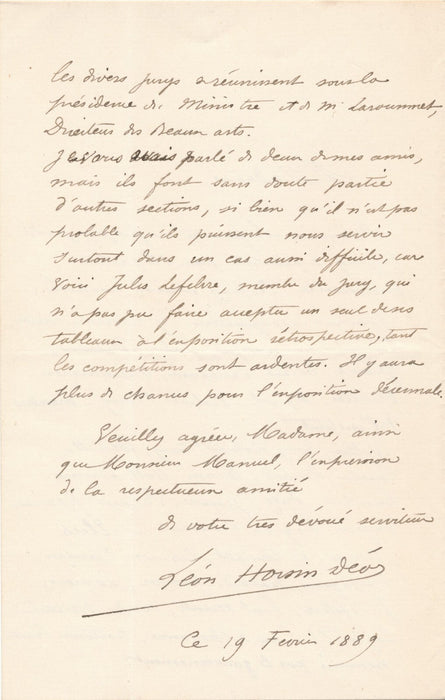 les divers jurys se réunissent sous la
présidence du Ministre et de Mr Larroumet,
Directeur des Beaux arts.
Je vous avais parlé de deux de mes amis,
mais ils font sans doute partie
d'autres sections, si bien qu'il n'est pas
probable qu'ils puissent nous servir
surtout dans un cas aussi difficile, car
voici Jules Lefebvre, membre du Jury, qui
n'a pas pu faire accepter un seul de ses
tableaux à l'exposition rétrospective, tant
les compétitions sont ardentes. Il y aura
plus de chances pour l'exposition décennale.
Veuillez agréer, Madame, ainsi
que Monsieur Manuel, l'expression
de la respectueuse amitié
de votre très dévoué serviteur
Léon
Ce 19 Fevrier 1889